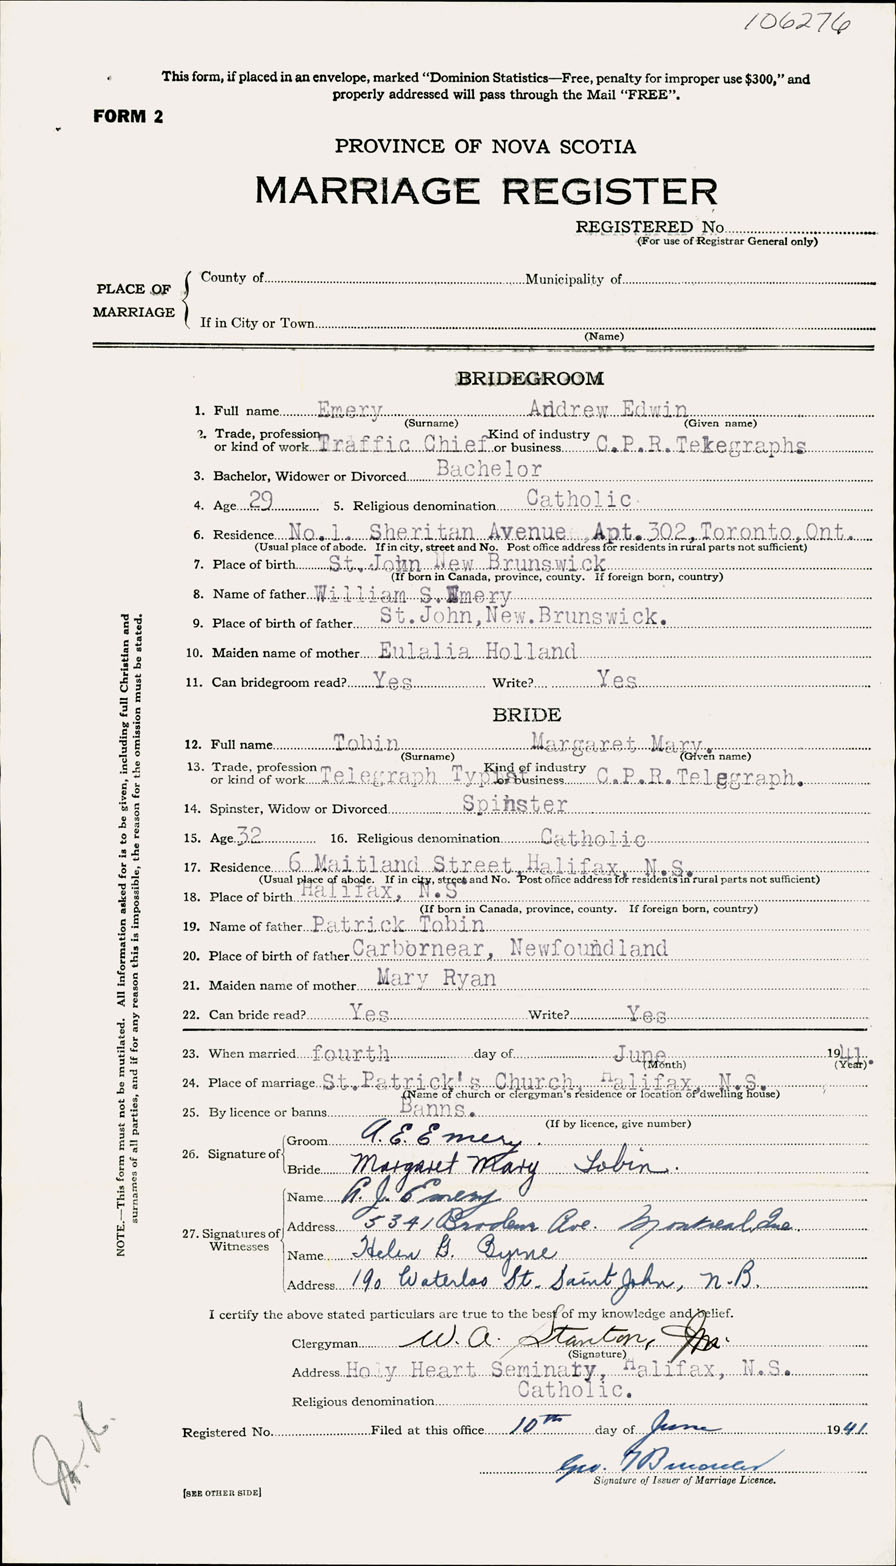 106276
This form, if placed in an envelope, marked "Dominion Statistics—Free, penalty for improper use $300," and
properly addressed will pass through the Mail "FREE".
FORM 2
PROVINCE OF NOVA SCOTIA
MARRIAGE REGISTER
REGISTERED No.
(For use of Registrar General only)
PLACE OF MARRIAGE
County of Municipality of
If in City or Town
(Name)
BRIDEGROOM
1. Full name Emery Andrew Edwin
(Surname) (Given name)
2. Trade, profession or kind of work Traffic Chief Kind of industry or business C.P.R.Telegraphs
3. Bachelor, Widower or Divorced Bachelor
4. Age 29 5. Religious denomination Catholic
6. Residence No.1. Sheritan Avenue Apt.302,Toronto,Ont.
(Usual place of abode. If in city, street and No. Post office address for residents in rural parts not sufficient)
7. Place of birth St.John New Brunswick
(If born in Canada, province, county. If foreign born, country)
8. Name of father William S.Emery
9. Place of birth of father St.John,New.Brunswick.
10. Maiden name of mother Eulalia Holland
11. Can bridegroom read? Yes Write? Yes
BRIDE
12. Full name Tobin Margaret Mary.
(Surname) (Given name)
13. Trade, profession or kind of work Telegraph Typist Kind of industry or business C.P.R.Telegraph.
14. Spinster, Widow or Divorced Spinster
15. Age 32 16. Religious denomination Catholic
17. Residence 6 Maitland Street,Halifax, N.S.
(Usual place of abode. If in city, street and No. Post office address for residents in rural parts not sufficient)
18. Place of birth Halifax, N.S
(If born in Canada, province, county. If foreign born, country)
19. Name of father Patrick Tobin
20. Place of birth of father Carbornear, Newfoundland
21. Maiden name of mother Mary Ryan
22. Can bride read? Yes Write? Yes
23. When married fourth day of June 1941.
(Month) (Year)
24. Place of marriage St.Patrick's Church, Halifax, N.S.
(Name of church or clergyman's residence or location of dwelling house)
25. By licence or banns Banns.
(If by licence, give number)
26. Signature of
Groom A. E. Emery.
Bride Margaret Mary Tobin.
27. Signatures of Witnesses
Name A. J. Emery
Address 5341 Ave. Montreal, Que
Name Helen G. Byrne
Address 190 Waterloo St. Saint John, N.B.
I certify the above stated particulars are true to the best of my knowledge and belief.
Clergyman W. A. Stanton,
(Signature)
Address Holy Heart Seminary, Halifax, N.S.
Religious denomination Catholic.
Registered No. Filed at this office 10th day of June 1941
Geo.
Signature of Issuer of Marriage Licence.
[SEE OTHER SIDE]
NOTE.—This form must not be mutilated. All information asked for is to be given, including full Christian and
surnames of all parties, and if for any reason this is impossible, the reason for the omission must be stated.